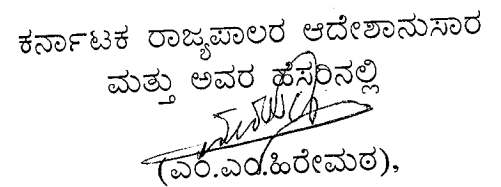 ಕರ್ನಾಟಕ ರಾಜ್ಯಪಾಲರ ಆದೇಶಾನುಸಾರ
ಮತ್ತು ಅವರ ಹೆಸರಿನಲ್ಲಿ
(ಎಂ.ಎಂ.ಹಿರೇಮಠ),